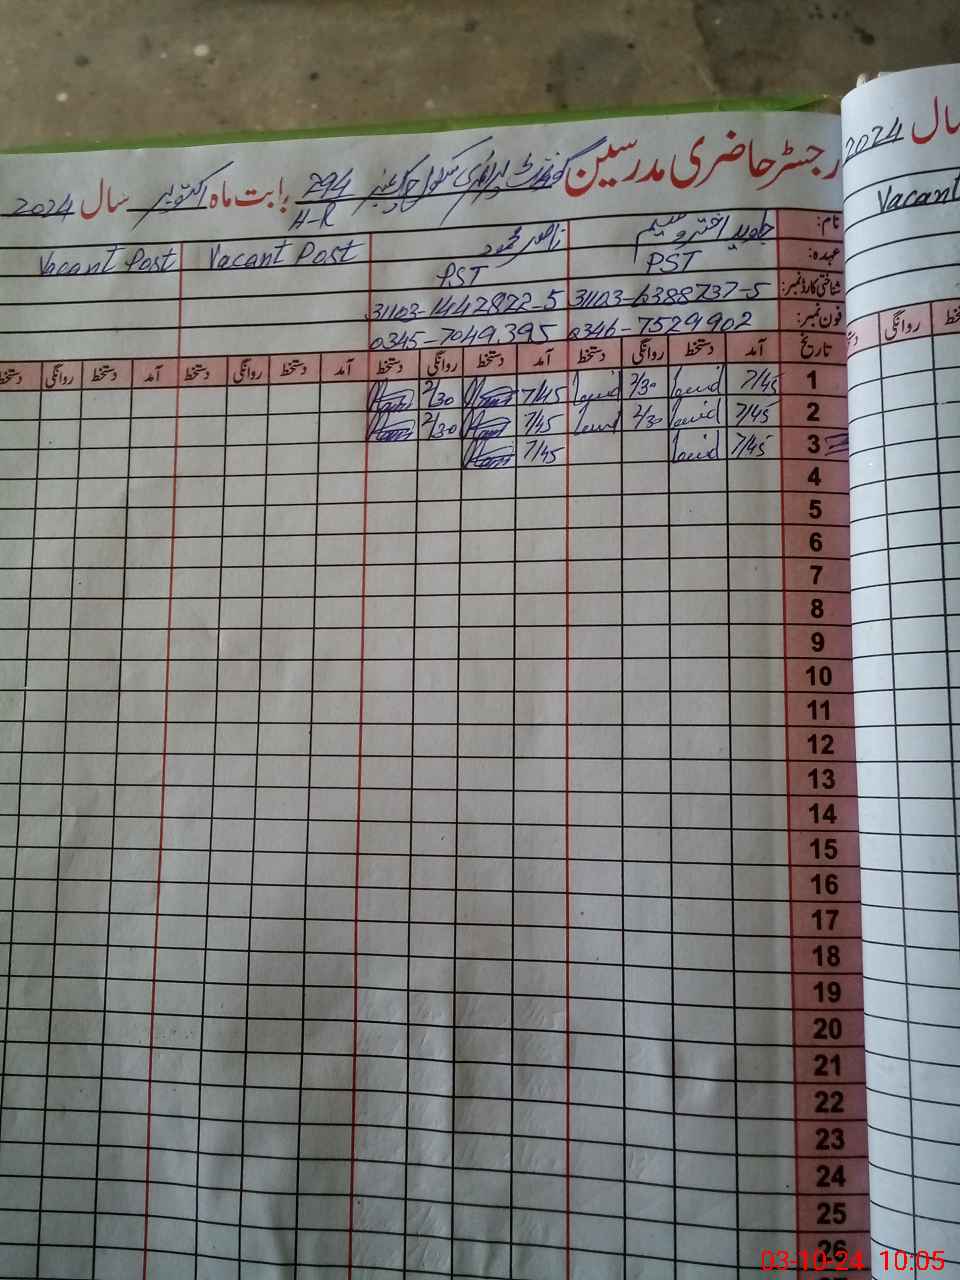 رجسٹر حاضری مدرسین گورنمنٹ پرائمری سکول چک نمبر 294 H-R بابت ماہ اکتوبر سال 2024
نام: جاوید اختر وسیم زاہد محمود Vacant Post Vacant Post
عہدہ: PST PST
شناختی کارڈ نمبر: 31103-6388737-5 31103-1442822-5
فون نمبر: 0346-7529902 0345-7049395
تاریخ آمد دستخط روانگی دستخط آمد دستخط روانگی دستخط آمد دستخط روانگی دستخط آمد دستخط روانگی دستخط
1 7/45 Javid 2/30 Javid 7/45 2/30
2 7/45 Javid 2/30 Javid 7/45 2/30
3 7/45 Javid 7/45
4
5
6
7
8
9
10
11
12
13
14
15
16
17
18
19
20
21
22
23
24
25
26
سال 2024
Vacant
روانگی
03-10-24 10:05